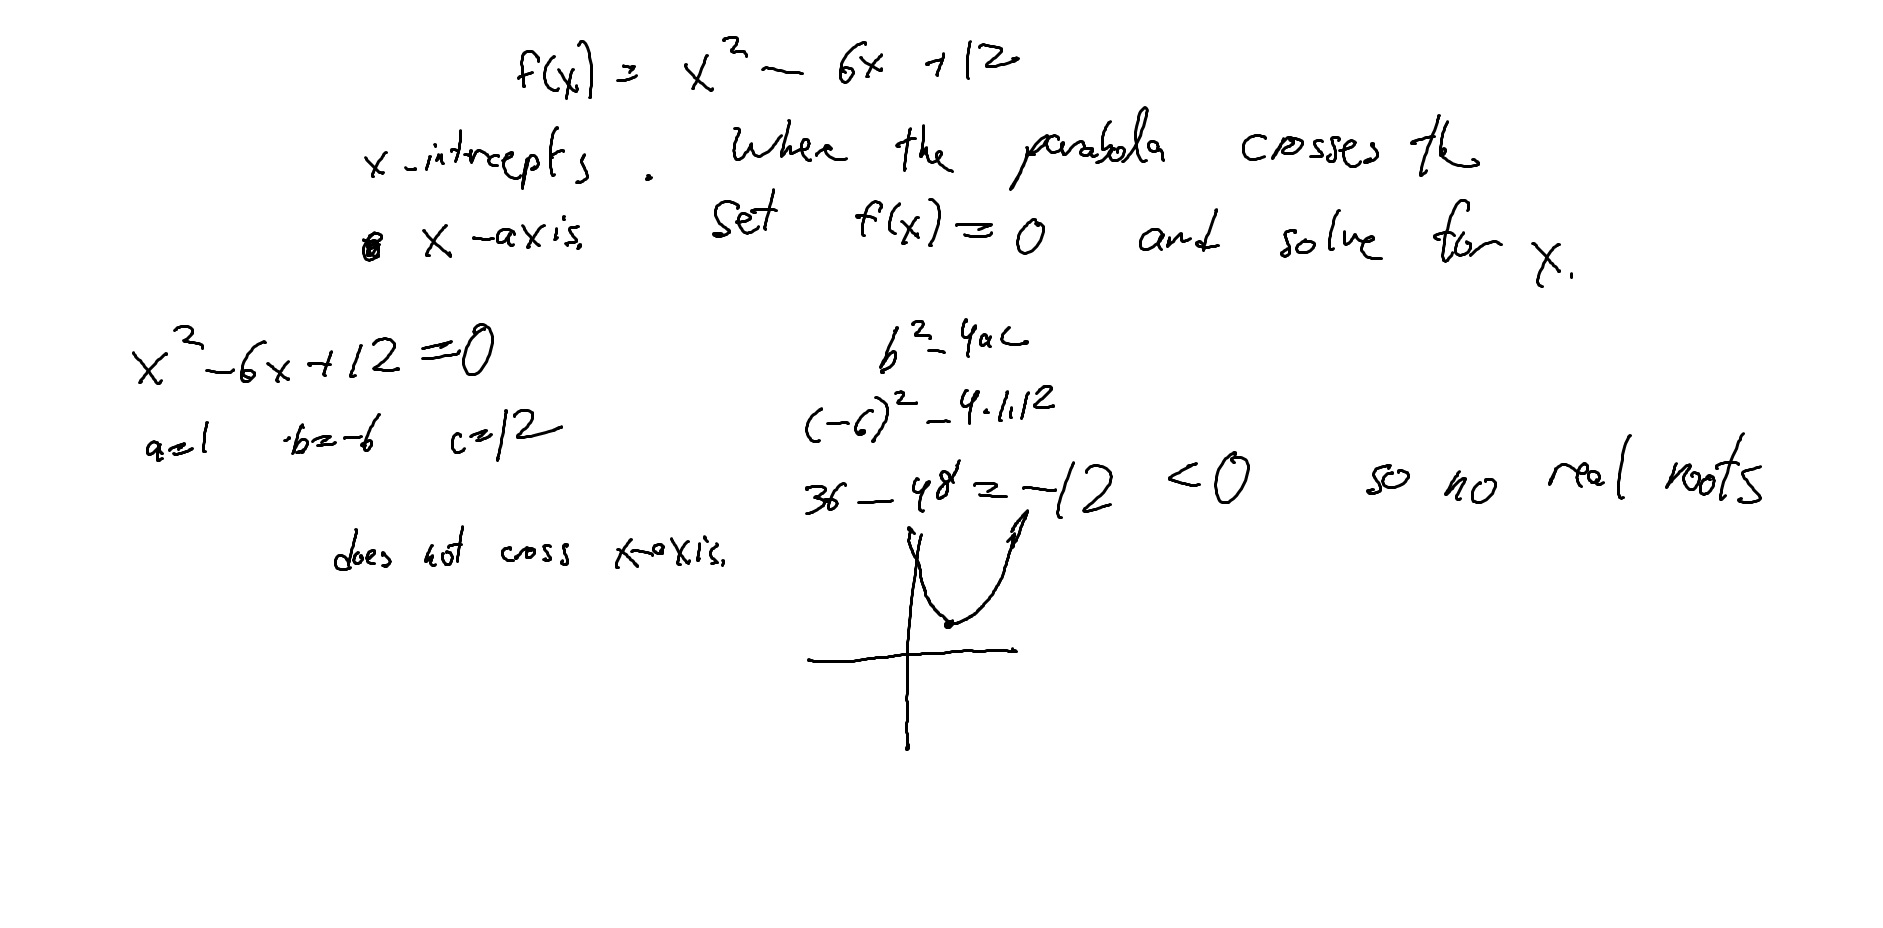 f(x) = x² - 6x + 12
x-intrcepts. Where the parabola crosses the
x-axis. Set f(x) = 0 and solve for x.
x² - 6x + 12 = 0
a=1 b=-6 c=12
b² - 4ac
(-6)² - 4·1·12
36 - 48 = -12 < 0 so no real roots
does not cross x-axis.